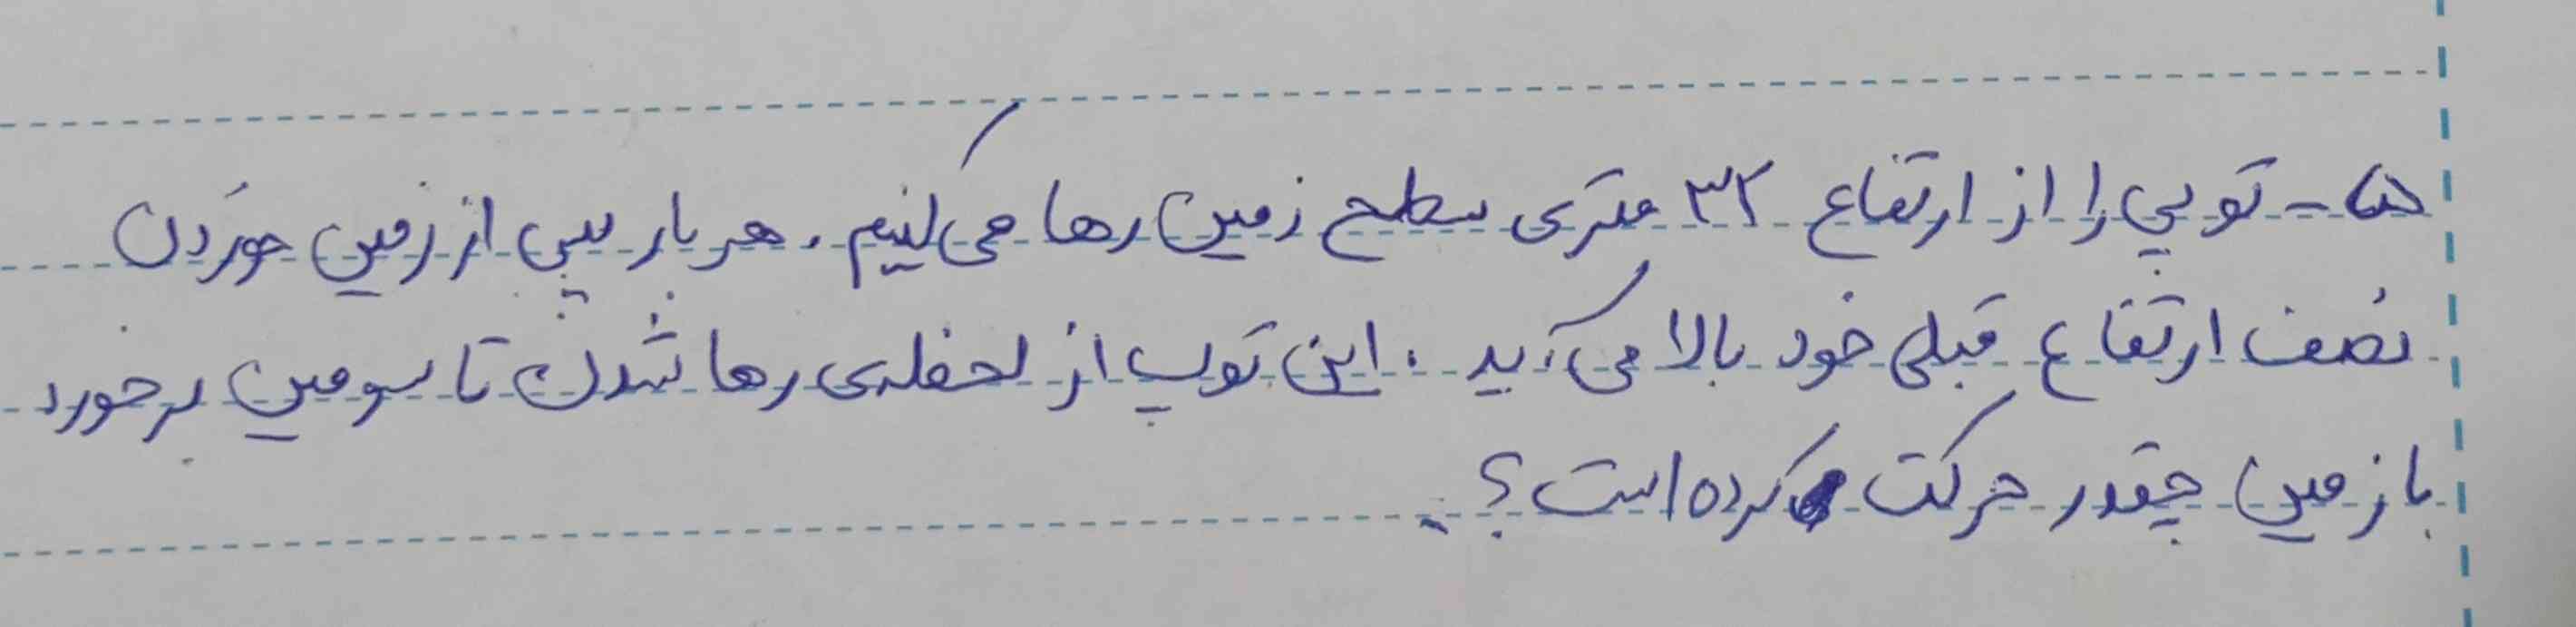 ۵- توپی را از ارتفاع ۳۲ متری سطح زمین رها می‌کنیم. هر بار پس از زمین خوردن
نصف ارتفاع قبلی خود بالا می‌آید. این توپ از لحظه‌ی رها شدن تا سومین برخورد
با زمین چقدر حرکت کرده است؟